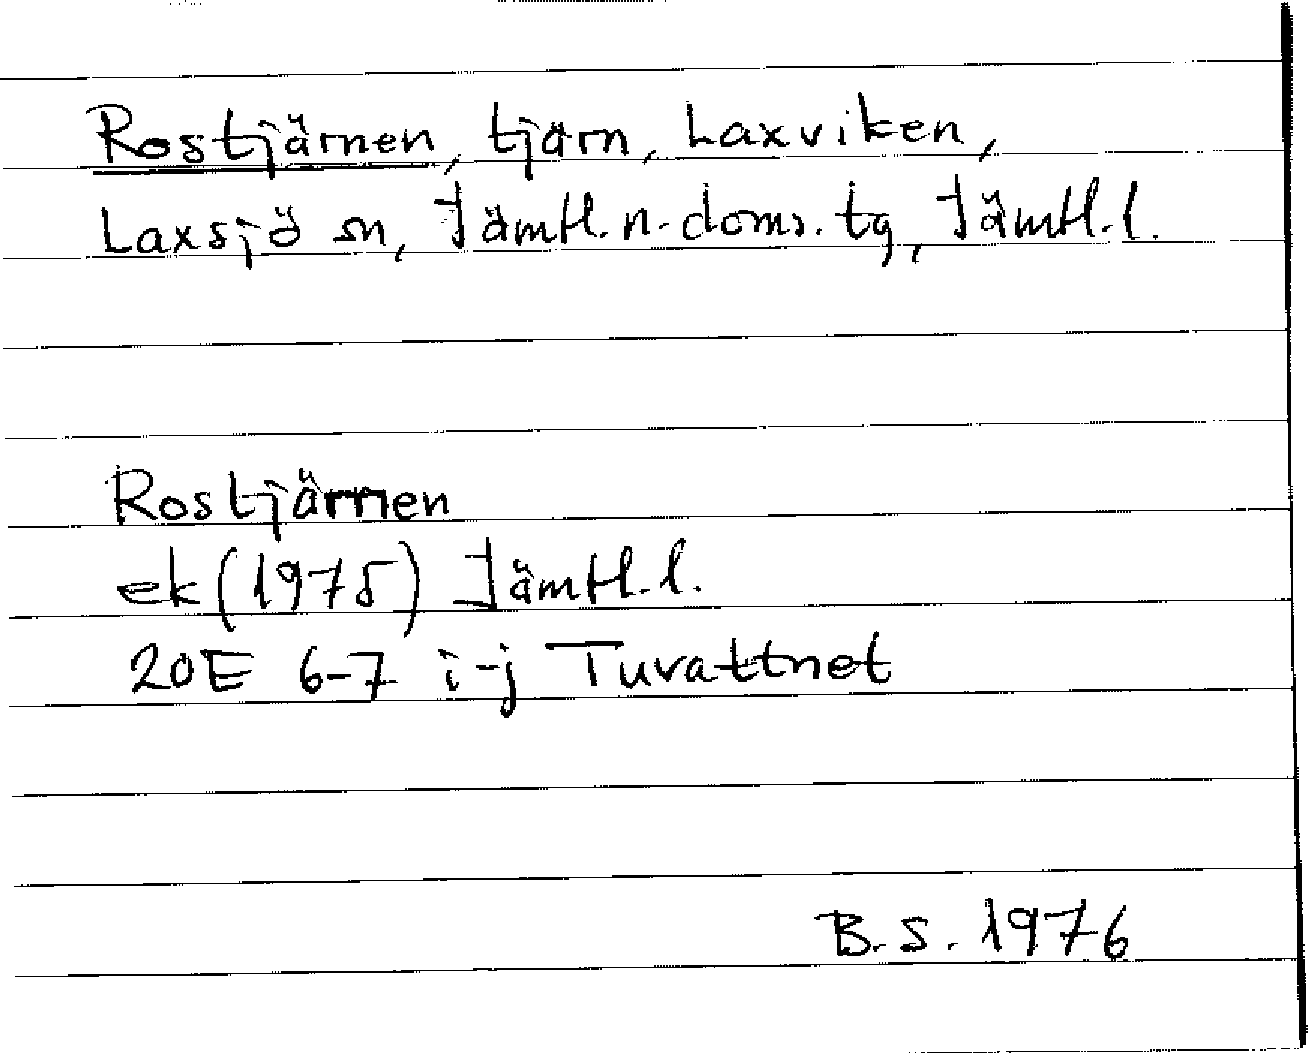 Rostjärnen, tjärn, Laxviken,
Laxsjö sn, Jämtl. n. doms. tg, Jämtl. l.
Rostjärnen
ek (1975) Jämtl. l.
20E 6-7 i-j Tuvattnet
B.S. 1976